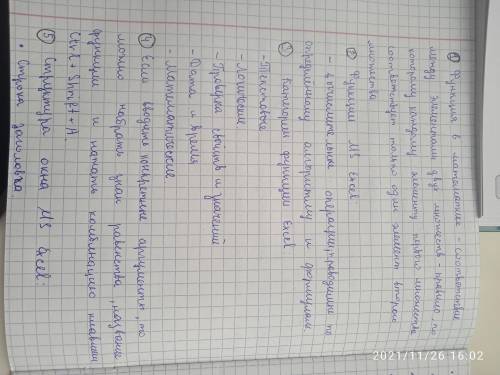 ① Функция в математике - соответствие
между элементами двух множеств - правило, по
которому каждому элементу первого множества
соответствует только один элемент второго
множества
② Функции MS Excel
- вычислительные операции, проводимые по
определенному алгоритму и формулам
③ Категории функций Excel
- Текстовые
Логические
- Проверка свойств и значений
- Дата и время
- Математические
④ Если вводить конкретные аргументы, то
можно набрать знак равенства, название
функции и нажать комбинацию клавиш
Ctrl + Shift + A.
⑤ Структура окна MS Excel
• Строка заголовка
2021/11/26 16:02